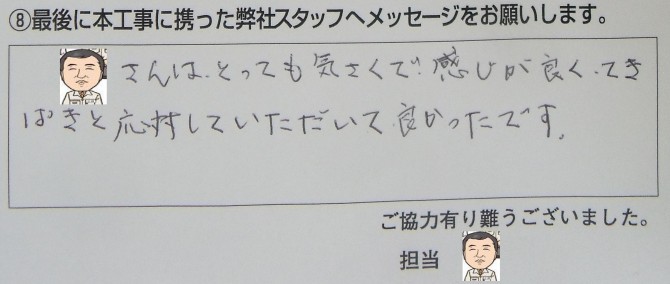 ⑧最後に本工事に携った弊社スタッフへメッセージをお願いします。
さんは、とっても気さくで、感じが良く、てき
ぱきと応対していただいて良かったです。
ご協力有り難うございました。
担当